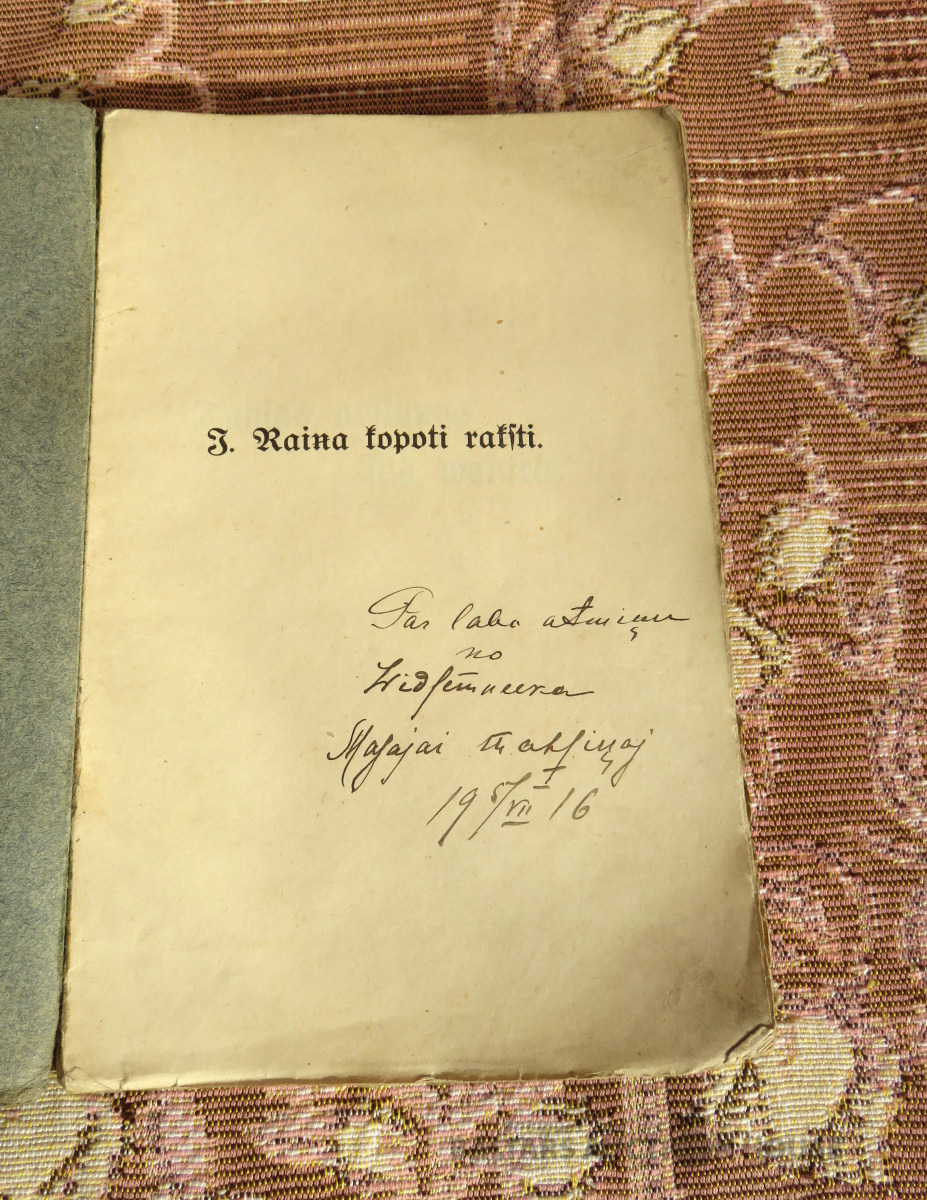 J. Raina kopoti rakſti.
Par labu atmiņu
no
Widſemneeka
Maſajai
19 5/VII 16